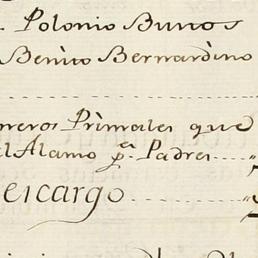 Polonio Bunos
Benito Bernardino
neros Primales que
el Alamo pª Padres
escargo